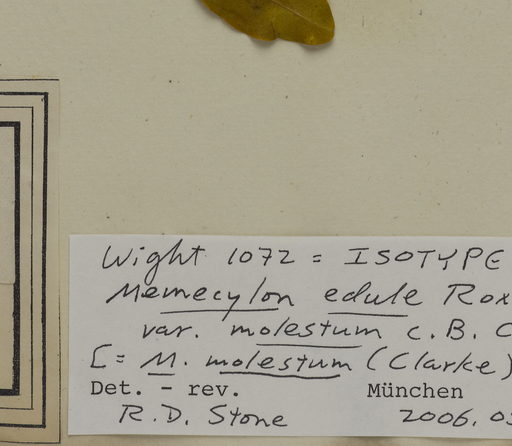 Wight 1072 = ISOTYPE
Memecylon edule Rox
var. molestum C. B. C
[= M. molestum (Clarke)
Det. - rev. München
R.D. Stone 2006. 03